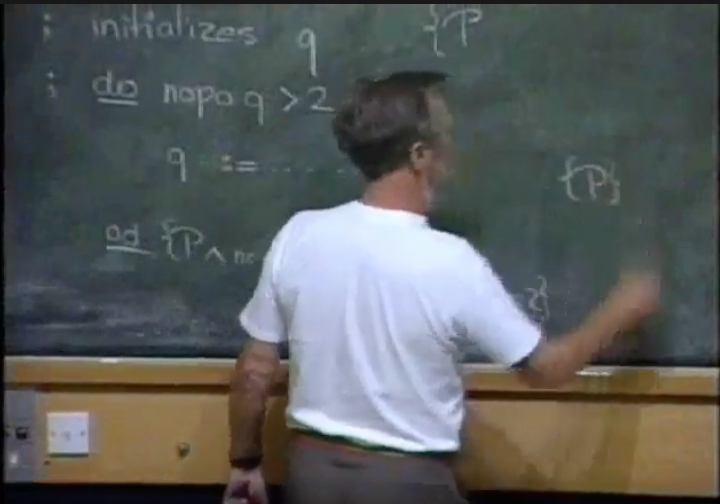 ; initializes q {P
; do nopo q > 2
q := ..... {P}
od {P ∧ no 2}